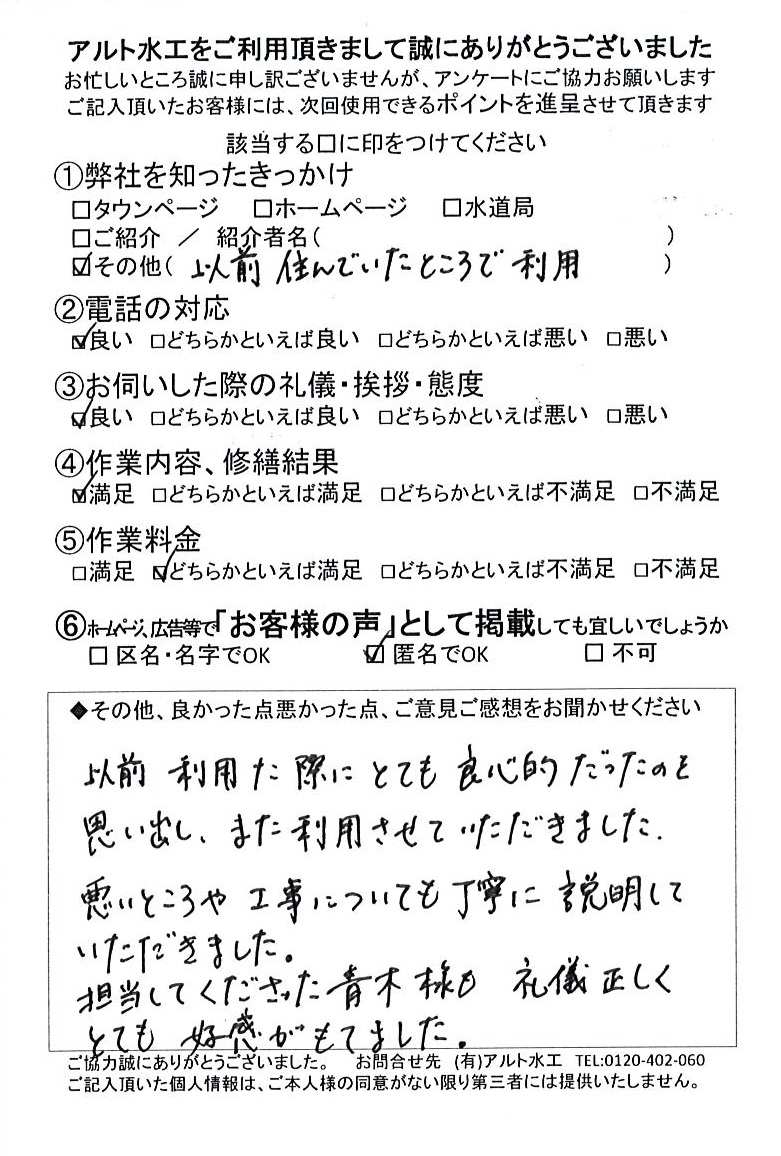 アルト水工をご利用頂きまして誠にありがとうございました
お忙しいところ誠に申し訳ございませんが、アンケートにご協力お願いします
ご記入頂いたお客様には、次回使用できるポイントを進呈させて頂きます
該当する□に印をつけてください
①弊社を知ったきっかけ
□タウンページ □ホームページ □水道局
□ご紹介 ／ 紹介者名( )
☑その他( 以前 住んでいたところで 利用 )
②電話の対応
☑良い □どちらかといえば良い □どちらかといえば悪い □悪い
③お伺いした際の礼儀・挨拶・態度
☑良い □どちらかといえば良い □どちらかといえば悪い □悪い
④作業内容、修繕結果
☑満足 □どちらかといえば満足 □どちらかといえば不満足 □不満足
⑤作業料金
□満足 ☑どちらかといえば満足 □どちらかといえば不満足 □不満足
⑥ホームページ、広告等で「お客様の声」として掲載しても宜しいでしょうか
□ 区名・名字でOK ☑ 匿名でOK □ 不可
◆その他、良かった点悪かった点、ご意見ご感想をお聞かせください
以前 利用た際にとても良心的だったのを
思い出し、また利用させていただきました.
悪いところや工事についても丁寧に説明して
いただきました。
担当してくださった青木様も 礼儀正しく
とても 好感がもてました。
ご協力誠にありがとうございました。 お問合せ先 (有)アルト水工 TEL:0120-402-060
ご記入頂いた個人情報は、ご本人様の同意がない限り第三者には提供いたしません。